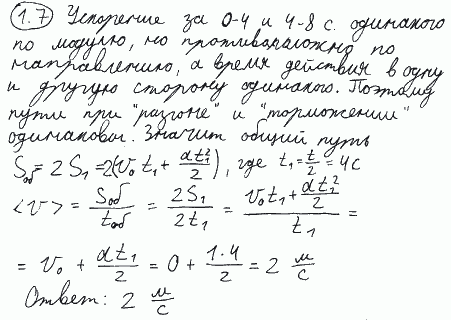 1.7 Ускорение за 0-4 и 4-8 с. одинаково
по модулю, но противоположно по
направлению, а время действия в одну
и другую сторону одинаково. Поэтому
пути при "разгоне" и "торможении"
одинаковы. Значит общий путь
Sоб = 2S₁ = 2(v₀t₁ + at₁²/2), где t₁ = t/2 = 4с
<v> = Sоб/tоб = 2S₁/2t₁ = (v₀t₁ + at₁²/2)/t₁ =
= v₀ + at₁/2 = 0 + 1·4/2 = 2 м/с
Ответ: 2 м/с